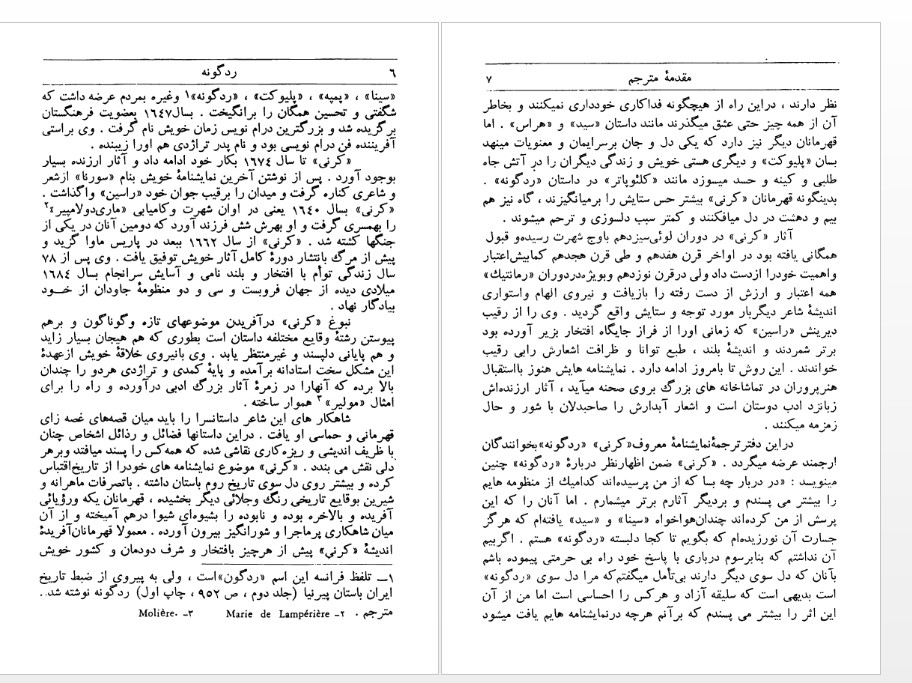 ٦
ردگونه
«سینا» ، «پمپه» ، «پلیوکت» ، «ردگونه»۱ وغیره بمردم عرضه داشت که
شگفتی و تحسین همگان را برانگیخت . بسال۱٦٤۷ بعضویت فرهنگستان
برگزیده شد و بزرگترین درام نویس زمان خویش نام گرفت . وی براستی
آفریننده فن درام نویسی بود و نام پدر تراژدی هم اورا زیبنده .
«کرنی» تا سال ۱٦۷٤ بکار خود ادامه داد و آثار ارزنده بسیار
بوجود آورد . پس از نوشتن آخرین نمایشنامهٔ خویش بنام «سورنا» ازشعر
و شاعری کناره گرفت و میدان را برقیب جوان خود «راسین» واگذاشت .
«کرنی» بسال ۱٦٤۰ یعنی در اوان شهرت وکامیابی «ماری‌دولامپیر»۲
را بهمسری گرفت و او بهرش شش فرزند آورد که دومین آنان در یکی از
جنگها کشته شد . «کرنی» از سال ۱٦٦۲ ببعد در پاریس ماوا گزید و
پیش از مرگ بانتشار دورهٔ کامل آثار خویش توفیق یافت . وی پس از ۷۸
سال زندگی توأم با افتخار و بلند نامی و آسایش سرانجام بسال ۱٦۸٤
میلادی دیده از جهان فروبست و سی و دو منظومهٔ جاودان از خـــود
بیادگار نهاد .
نبوغ «کرنی» درآفریدن موضوعهای تازه وگوناگون و برهم
پیوستن رشتهٔ وقایع مختلفه داستان است بطوری که هم هیجان بسیار زاید
و هم پایانی دلپسند و غیرمنتظر یابد . وی بانیروی خلاقهٔ خویش ازعهدهٔ
این مشکل سخت استادانه برآمده و پایهٔ کمدی و تراژدی هردو را چندان
بالا برده که آنهارا در زمرهٔ آثار بزرگ ادبی درآورده و راه را برای
امثال «مولیر»۳ هموار ساخته .
شاهکار های این شاعر داستانسرا را باید میان قصه‌های غصه زای
قهرمانی و حماسی او یافت . دراین داستانها فضائل و رذائل اشخاص چنان
با ظریف اندیشی و ریزه‌کاری نقاشی شده که همه‌کس را پسند میافتد وبرهر
دلی نقش می بندد . «کرنی» موضوع نمایشنامه های خودرا از تاریخ‌اقتباس
کرده و بیشتر روی دل سوی تاریخ روم باستان داشته . باتصرفات ماهرانه و
شیرین بوقایع تاریخی رنگ وجلائی دیگر بخشیده ، قهرمانان یکه ورؤیائی
آفریده و بالاخره بوده و نابوده را بشیوه‌ای شیوا درهم آمیخته و از آن
میان شاهکاری پرماجرا و شورانگیز بیرون آورده . معمولا قهرمانان‌آفریدهٔ
اندیشهٔ «کرنی» پیش از هرچیز بافتخار و شرف دودمان و کشور خویش
۱ــ تلفظ فرانسه این اسم «ردگون»است ، ولی به پیروی از ضبط تاریخ
ایران باستان پیرنیا (جلد دوم ، ص ۹٥۲ ، چاپ اول) ردگونه نوشته شد..
مترجم . ۲ــ Marie de Lampérière ۳ــ Molière.
مقدمهٔ مترجم
۷
نظر دارند ، دراین راه از هیچگونه فداکاری خودداری نمیکنند و بخاطر
آن از همه چیز حتی عشق میگذرند مانند داستان «سید» و «هراس» . اما
قهرمانان دیگر نیز دارد که یکی دل و جان برسرایمان و معنویات مینهد
بسان «پلیوکت» و دیگری هستی خویش و زندگی دیگران را در آتش جاه
طلبی و کینه و حسد میسوزد مانند «کلئوپاتر» در داستان «ردگونه» .
بدینگونه قهرمانان «کرنی» بیشتر حس ستایش را برمیانگیزند ، گاه نیز هم
بیم و دهشت در دل میافکنند و کمتر سبب دلسوزی و ترحم میشوند .
آثار «کرنی» در دوران لوئی‌سیزدهم باوج شهرت رسیدو قبول
همگانی یافته بود در اواخر قرن هفدهم و طی قرن هجدهم کمابیش‌اعتبار
واهمیت خودرا ازدست داد ولی درقرن نوزدهم وبویژه‌دردوران «رمانتیك»
همه اعتبار و ارزش از دست رفته را بازیافت و نیروی الهام واستواری
اندیشهٔ شاعر دیگربار مورد توجه و ستایش واقع گردید . وی را از رقیب
دیرینش «راسین» که زمانی اورا از فراز جایگاه افتخار بزیر آورده بود
برتر شمردند و اندیشهٔ بلند ، طبع توانا و ظرافت اشعارش رابی رقیب
خواندند . این روش تا بامروز ادامه دارد . نمایشنامه هایش هنوز بااستقبال
هنرپروران در تماشاخانه های بزرگ بروی صحنه میآید ، آثار ارزنده‌اش
زبانزد ادب دوستان است و اشعار آبدارش را صاحبدلان با شور و حال
زمزمه میکنند .
دراین دفتر ترجمهٔ‌نمایشنامهٔ معروف«کرنی» «ردگونه»بخوانندگان
ارجمند عرضه میگردد . «کرنی» ضمن اظهارنظر دربارهٔ «ردگونه» چنین
مینویسد : «در دربار چه بسا که از من پرسیده‌اند کدامیك از منظومه هایم
را بیشتر می پسندم و بردیگر آثارم برتر میشمارم . اما آنان را که این
پرسش از من کرده‌اند چندان‌هواخواه «سینا» و «سید» یافته‌ام که هرگز
جسارت آن نورزیده‌ام که بگویم تا کجا دلبسته «ردگونه» هستم . اگربیم
آن نداشتم که بنابرسوم درباری با پاسخ خود راه بی حرمتی پیموده باشم
بآنان که دل سوی دیگر دارند بی‌تأمل میگفتم‌که مرا دل سوی «ردگونه»
است بدیهی است که سلیقه آزاد و هرکس را احساسی است اما من از آن
این اثر را بیشتر می پسندم که برآنم هرچه درنمایشنامه هایم یافت میشود